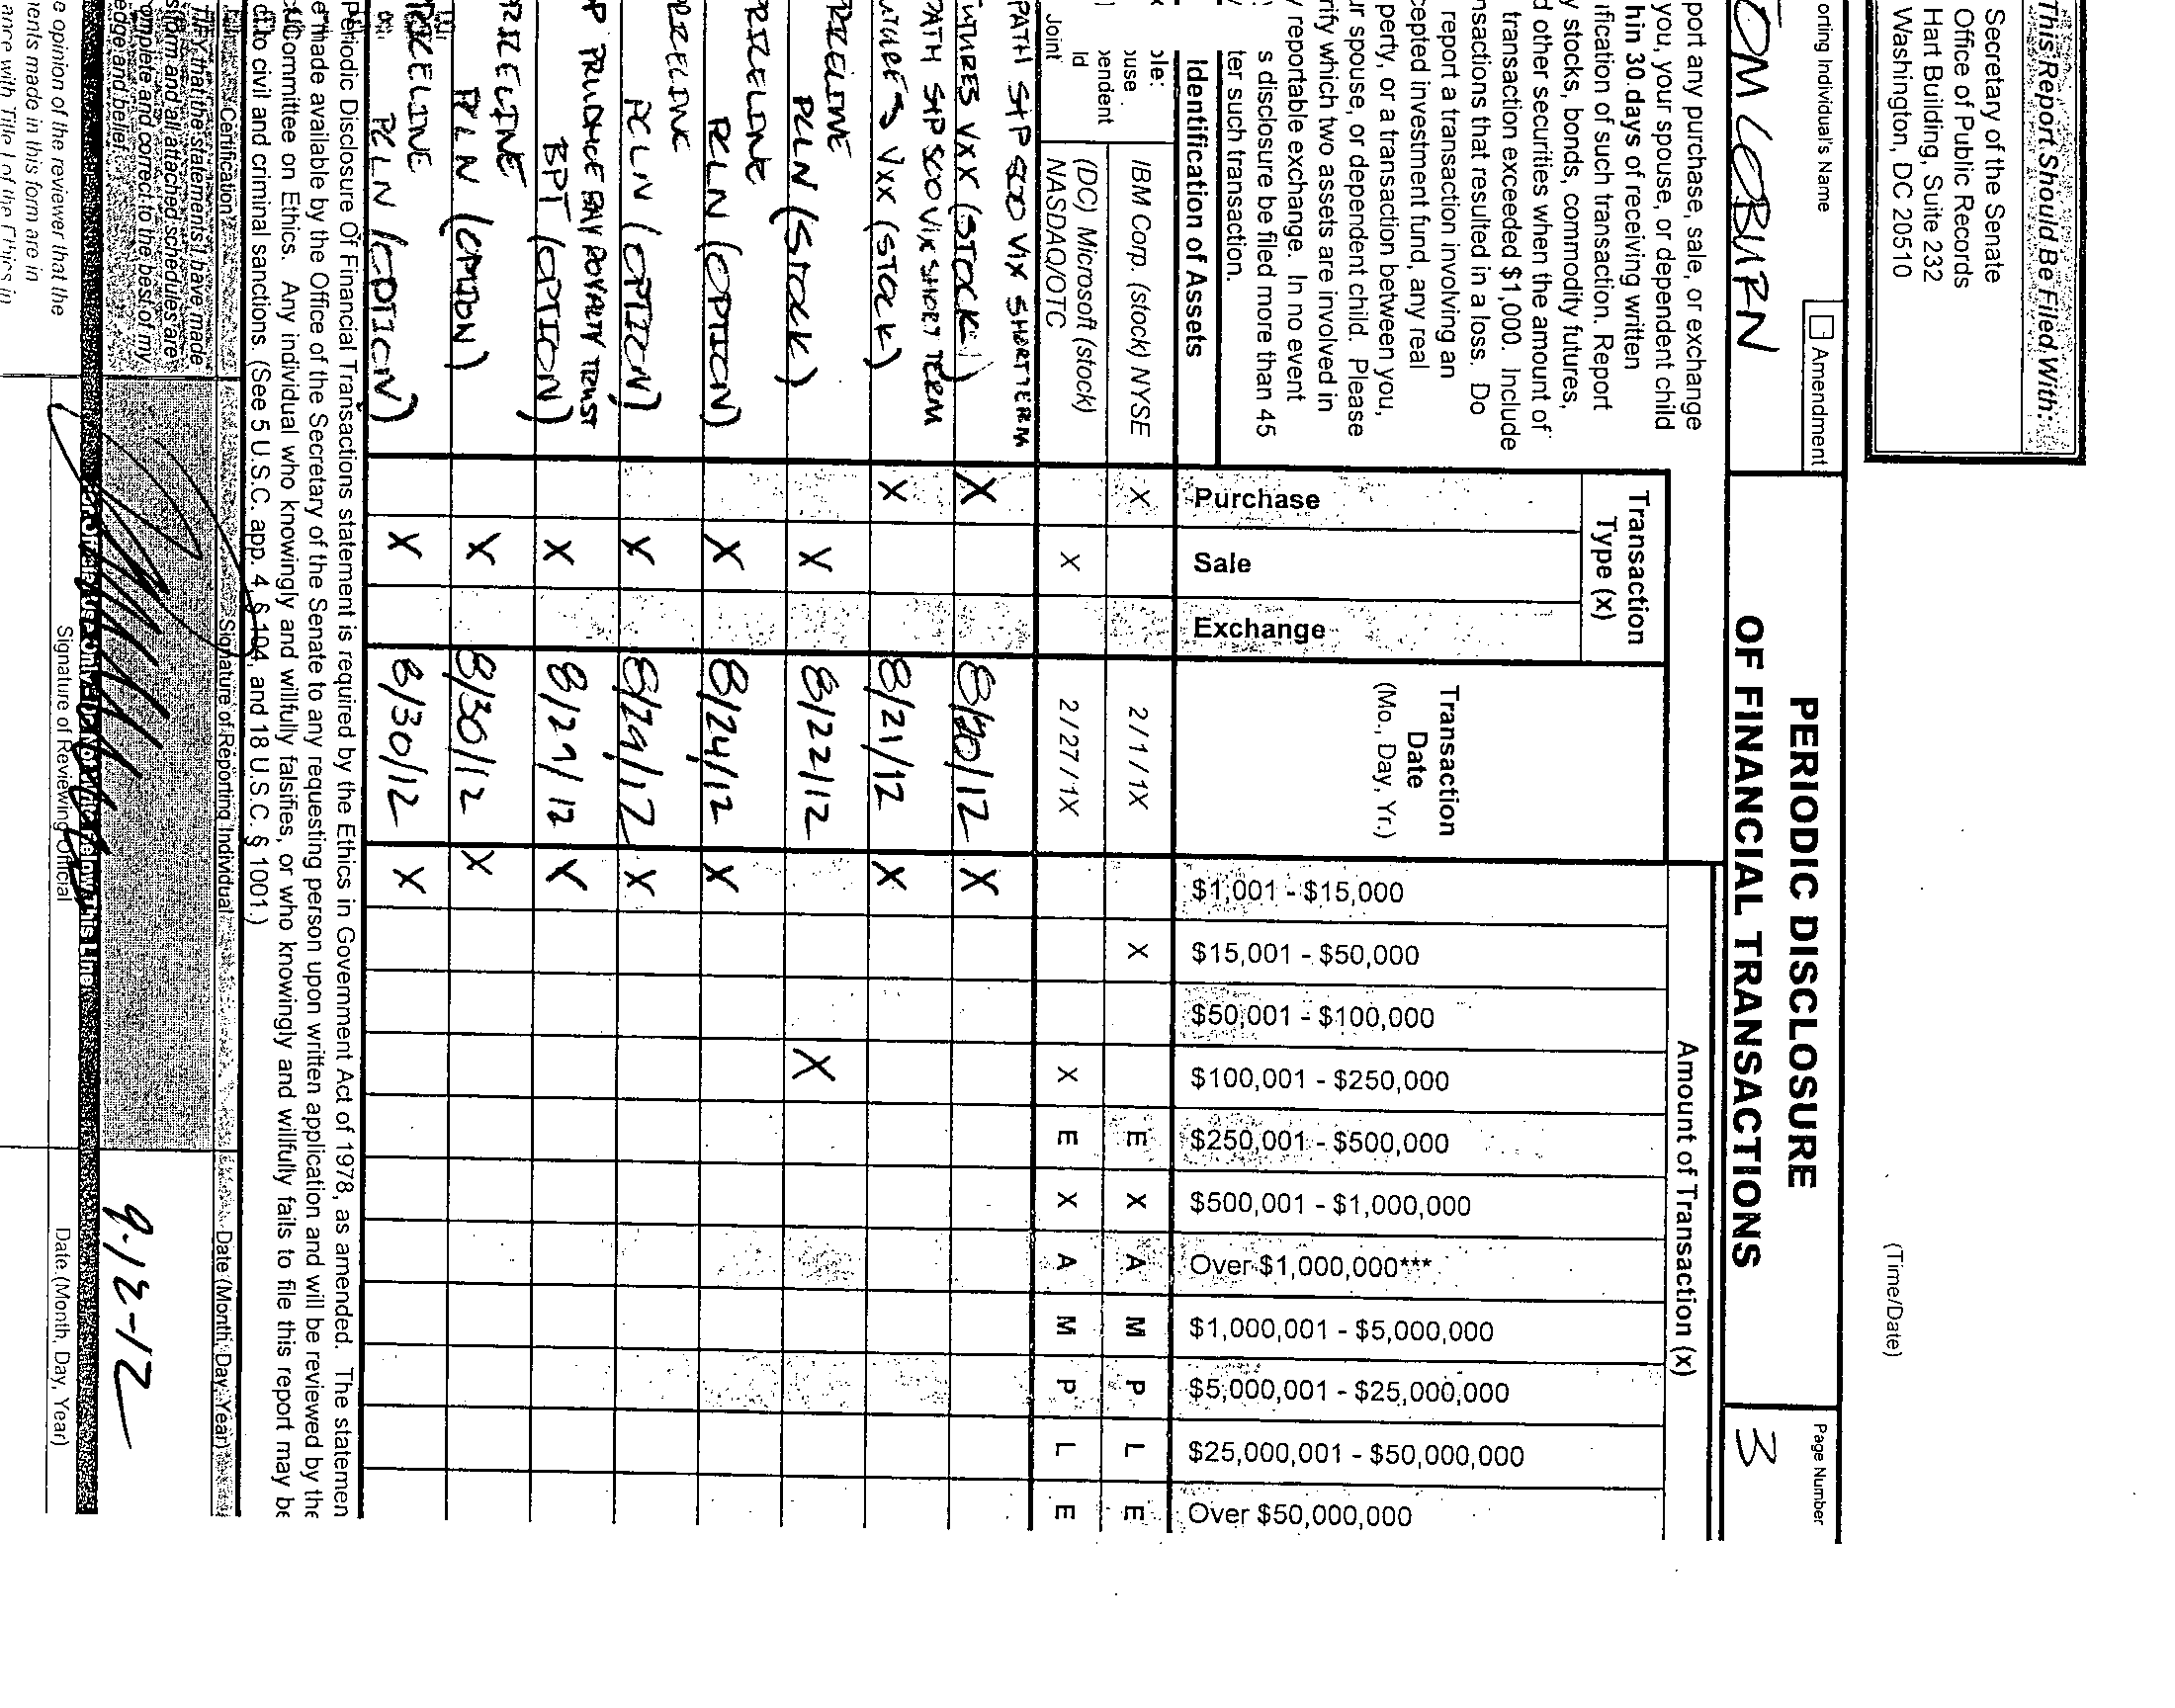 This Report Should Be Filed With:
Secretary of the Senate
Office of Public Records
Hart Building, Suite 232
Washington, DC 20510
(Time/Date)
orting Individual's Name
Amendment
TOM COBURN
PERIODIC DISCLOSURE
OF FINANCIAL TRANSACTIONS
Page Number
3
port any purchase, sale, or exchange
you, your spouse, or dependent child
hin 30 days of receiving written
ification of such transaction. Report
y stocks, bonds, commodity futures,
d other securities when the amount of
transaction exceeded $1,000. Include
nsactions that resulted in a loss. Do
report a transaction involving an
cepted investment fund, any real
perty, or a transaction between you,
ur spouse, or dependent child. Please
rify which two assets are involved in
reportable exchange. In no event
s disclosure be filed more than 45
ter such transaction.
Transaction
Type (x)
Transaction
Date
(Mo., Day, Yr.)
Amount of Transaction (x)
Identification of Assets
Purchase
Sale
Exchange
$1,001 - $15,000
$15,001 - $50,000
$50,001 - $100,000
$100,001 - $250,000
$250,001 - $500,000
$500,001 - $1,000,000
Over $1,000,000***
$1,000,001 - $5,000,000
$5,000,001 - $25,000,000
$25,000,001 - $50,000,000
Over $50,000,000
ple:
ouse
IBM Corp. (stock) NYSE X 2/1/1X X E X A M P L E
pendent
ld
Joint
(DC) Microsoft (stock)
NASDAQ/OTC X 2/27/1X X E X A M P L E
PATH S+P 500 VIX SHORT TERM
UTURES VXX (STOCK) X 8/20/12 X
PATH S+P 500 VIX SHORT TERM
VXX (STOCK) X 8/21/12 X
PRICELINE
PCLN (STOCK) X 8/22/12 X
PRICELINE
PCLN (OPTION) X 8/24/12 X
PRICELINE
PCLN (OPTION) X 8/29/12 X
P PRUDHOE BAY ROYALTY TRUST
BPT (OPTION) X 8/29/12 X
PRICELINE
PCLN (OPTION) X 8/30/12 X
PRICELINE
PCLN (OPTION) X 8/30/12 X
Periodic Disclosure Of Financial Transactions statement is required by the Ethics in Government Act of 1978, as amended. The statemen
e made available by the Office of the Secretary of the Senate to any requesting person upon written application and will be reviewed by the
Committee on Ethics. Any individual who knowingly and willfully falsifies, or who knowingly and willfully fails to file this report may be
ct to civil and criminal sanctions. (See 5 U.S.C. app. 4, § 104, and 18 U.S.C. § 1001.)
Certification
Signature of Reporting Individual
Date (Month, Day, Year)
TIFY that the statements I have made
s form and all attached schedules are
omplete and correct to the best of my
edge and belief.
9-12-12
For Official Use Only - Do Not Write Below this Line
e opinion of the reviewer that the
ments made in this form are in
ance with Title I of the Ethics in
Signature of Reviewing Official
Date (Month, Day, Year)